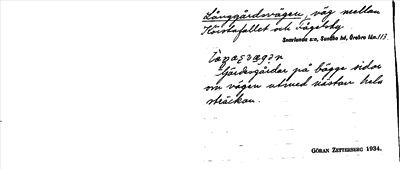 Långgårdsvägen, väg mellan
Korstafallet och Fågelsby
Svarlands sn, Sundbo hd, Örebro län. 113.
Gärdesgårdar på bägge sidor
om vägen utmed nästan hela
sträckan.
GÖRAN ZETTERBERG 1934.